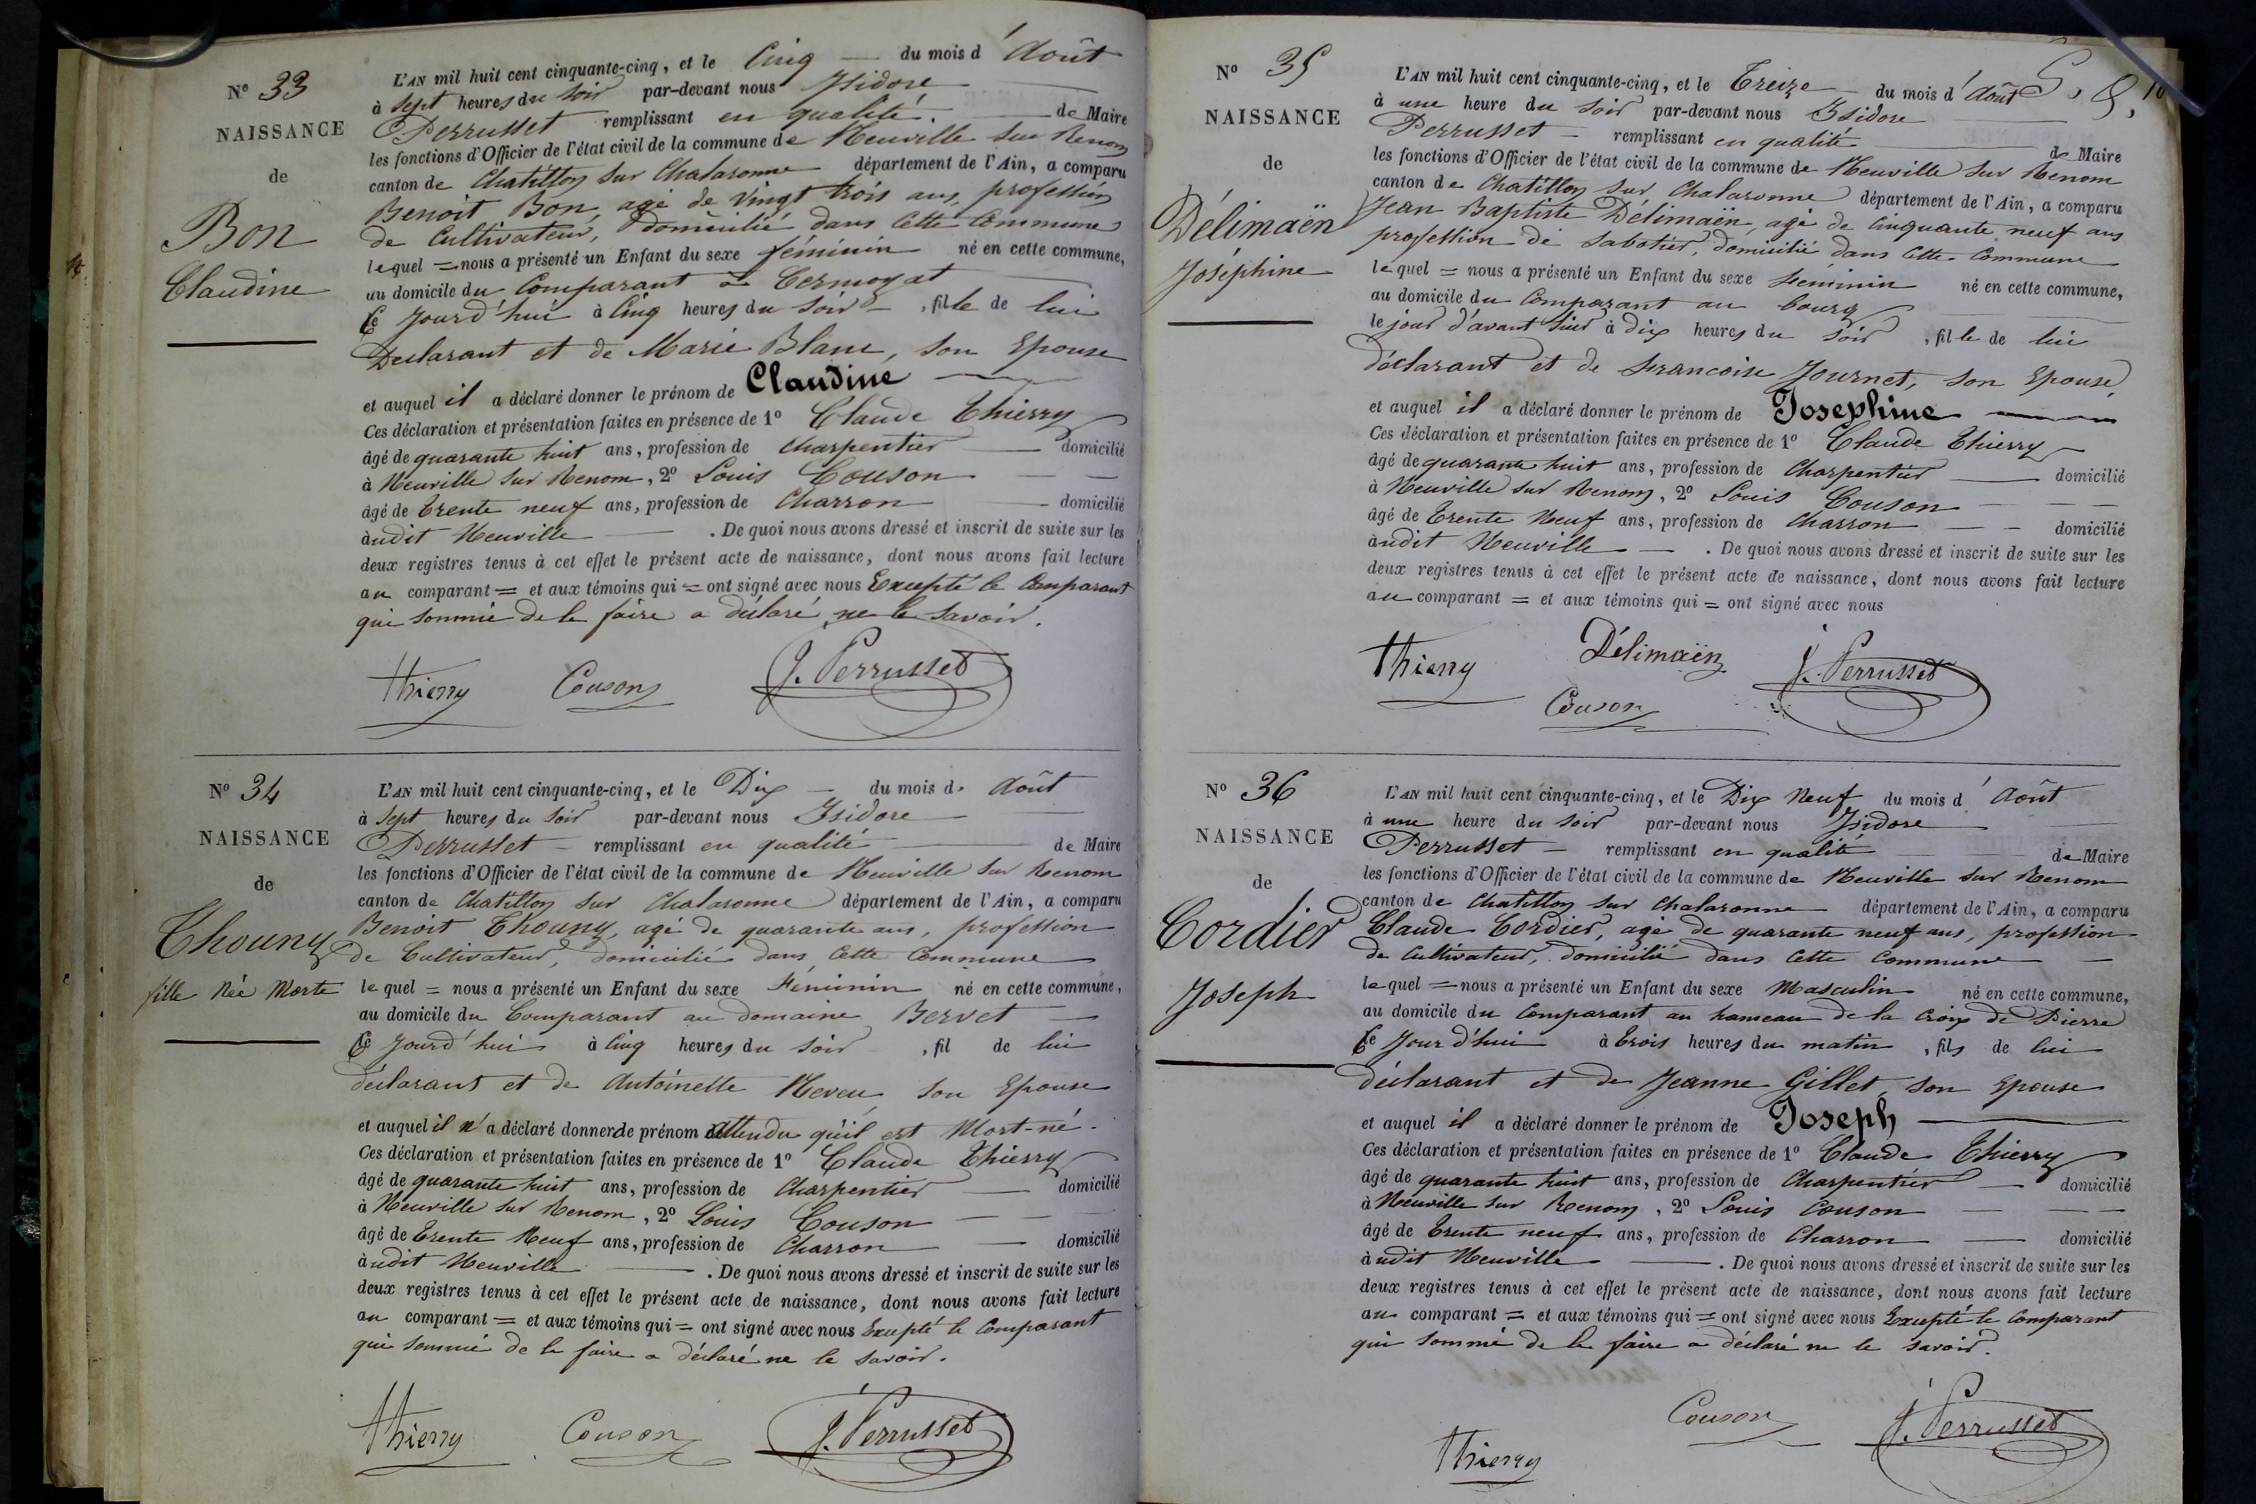 N° 33
NAISSANCE
de
Bon
Claudine
L'AN mil huit cent cinquante-cinq, et le Cinq du mois d'Août
à sept heures du soir par-devant nous Isidore
Perrusset remplissant en qualité de Maire
les fonctions d'Officier de l'état civil de la commune de Neuville sur Renom
canton de Chatillon sur Chalaronne département de l'Ain, a comparu
Benoit Bon, agé de vingt trois ans, profession
de Cultivateur, domicilié dans cette Commune
lequel = nous a présenté un Enfant du sexe féminin né en cette commune,
au domicile du Comparant à Cermoyat
Ce jourd'hui à Cinq heures du soir, fille de lui
Déclarant et de Marie Blanc, son Epouse
et auquel il a déclaré donner le prénom de Claudine
Ces déclaration et présentation faites en présence de 1° Claude Thierry
âgé de quarante huit ans, profession de Charpentier domicilié
à Neuville sur Renom, 2° Louis Couson
âgé de Trente neuf ans, profession de Charron domicilié
àudit Neuville. De quoi nous avons dressé et inscrit de suite sur les
deux registres tenus à cet effet le présent acte de naissance, dont nous avons fait lecture
au comparant = et aux témoins qui = ont signé avec nous Excepté le Comparant
qui sommé de le faire a déclaré ne le savoir.
Thierry Couson J. Perrusset
N° 34
NAISSANCE
de
Thouny
fille Née Morte
L'AN mil huit cent cinquante-cinq, et le Dix du mois d. Août
à sept heures du soir par-devant nous Isidore
Perrusset remplissant en qualité de Maire
les fonctions d'Officier de l'état civil de la commune de Neuville sur Renom
canton de Chatillon sur Chalaronne département de l'Ain, a comparu
Benoit Thouny, agé de quarante ans, profession
de Cultivateur, domicilié dans cette Commune
lequel = nous a présenté un Enfant du sexe Féminin né en cette commune,
au domicile du Comparant au domaine Bervet
Ce jourd'hui à Cinq heures du soir, fil de lui
déclarant et de Antoinette Neveu son Epouse
et auquel il n'a déclaré donner de prénom attendu qu'il est Mort-né.
Ces déclaration et présentation faites en présence de 1° Claude Thierry
âgé de quarante huit ans, profession de Charpentier domicilié
à Neuville sur Renom, 2° Louis Couson
âgé de Trente Neuf ans, profession de Charron domicilié
àudit Neuville. De quoi nous avons dressé et inscrit de suite sur les
deux registres tenus à cet effet le présent acte de naissance, dont nous avons fait lecture
au comparant = et aux témoins qui = ont signé avec nous Excepté le Comparant
qui sommé de le faire a déclaré ne le savoir.
Thierry Couson J. Perrusset
N° 35
NAISSANCE
de
Délimaën
Joséphine
L'AN mil huit cent cinquante-cinq, et le Treize du mois d'Août
à une heure du soir par-devant nous Isidore
Perrusset remplissant en qualité de Maire
les fonctions d'Officier de l'état civil de la commune de Neuville sur Renom
canton de Chatillon sur Chalaronne département de l'Ain, a comparu
Jean Baptiste Délimaën, agé de Cinquante neuf ans
profession de Sabotier, domicilié dans Cette Commune
lequel = nous a présenté un Enfant du sexe Féminin né en cette commune,
au domicile du Comparant au bourg
le jour d'avant hier à dix heures du soir, fille de lui
déclarant et de Francoise Journet, son Epouse,
et auquel il a déclaré donner le prénom de Josephine
Ces déclaration et présentation faites en présence de 1° Claude Thierry
âgé de quarante huit ans, profession de Charpentier domicilié
à Neuville sur Renom, 2° Louis Couson
âgé de Trente Neuf ans, profession de Charron domicilié
àudit Neuville. De quoi nous avons dressé et inscrit de suite sur les
deux registres tenus à cet effet le présent acte de naissance, dont nous avons fait lecture
au comparant = et aux témoins qui = ont signé avec nous
Thierry Délimaën J. Perrusset
Couson
N° 36
NAISSANCE
de
Cordier
Joseph
L'AN mil huit cent cinquante-cinq, et le Dix Neuf du mois d'Août
à une heure du soir par-devant nous Isidore
Perrusset remplissant en qualité de Maire
les fonctions d'Officier de l'état civil de la commune de Neuville sur Renom
canton de Chatillon sur Chalaronne département de l'Ain, a comparu
Claude Cordier, agé de quarante neuf ans, profession
de Cultivateur, domicilié dans Cette Commune
lequel = nous a présenté un Enfant du sexe Masculin né en cette commune,
au domicile du Comparant au hameau de la Croix de Pierre
Ce Jour d'hui à trois heures du matin, fils de lui
déclarant et de Jeanne Gillet son Epouse
et auquel il a déclaré donner le prénom de Joseph
Ces déclaration et présentation faites en présence de 1° Claude Thierry
âgé de quarante huit ans, profession de Charpentier domicilié
à Neuville sur Renom, 2° Louis Couson
âgé de Trente neuf ans, profession de Charron domicilié
àudit Neuville. De quoi nous avons dressé et inscrit de suite sur les
deux registres tenus à cet effet le présent acte de naissance, dont nous avons fait lecture
au comparant = et aux témoins qui = ont signé avec nous Excepté le Comparant
qui sommé de le faire a déclaré ne le savoir.
Couson J. Perrusset
Thierry